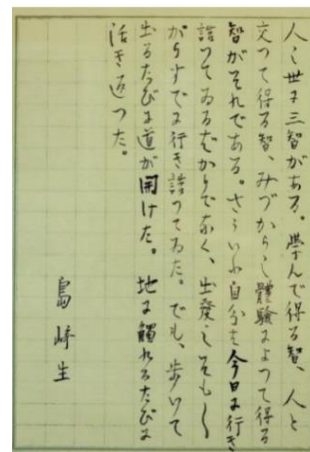 人の世に三智がある。學んで得る智、人と
交つて得る智、みづからの體驗によつて得る
智がそれである。さういふ自分も今日に行き
詰つてゐるばかりでなく、出發のそも〳〵
からすでに行き詰つてゐた。でも、歩いて
出るたびに道が開けた。地に觸れるたびに
活き返つた。
島崎生